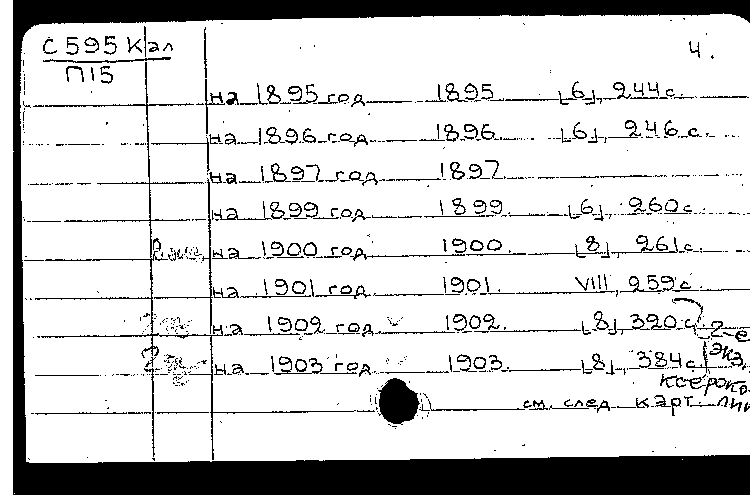 С595Кал
П15
4.
на 1895 год 1895 [6], 244 с.
на 1896 год 1896. [6], 246 с.
на 1897 год 1897.
на 1899 год 1899. [6], 260 с.
2 экз. на 1900 год 1900. [8], 261 с.
на 1901 год 1901. VIII, 259 с.
на 1902 год 1902. [8], 320 с. 2-е
на 1903 год 1903. [8], 384 с. экз.
ксероко
см. след карт.